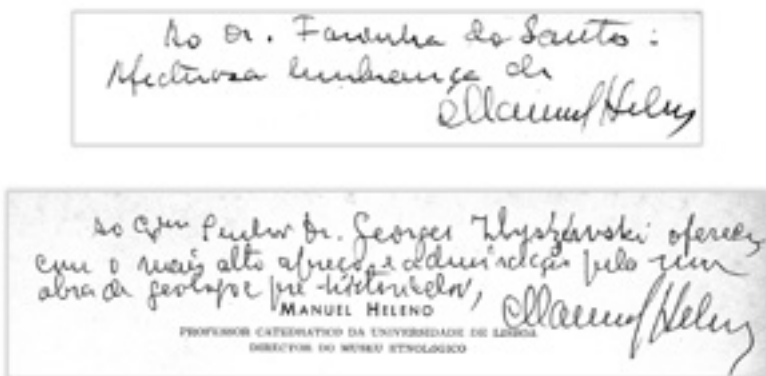 Ao Dr. Farinha do Santos:
Afectuosa lembrança de
Manuel Heleno
Ao Exmo Senhor Dr. Georges Zbyszewski oferece,
com o mais alto apreço e admiração pela sua
obra de geólogo e pré-historiador,
Manuel Heleno
MANUEL HELENO
PROFESSOR CATEDRATICO DA UNIVERSIDADE DE LISBOA
DIRECTOR DO MUSEU ETNOLOGICO